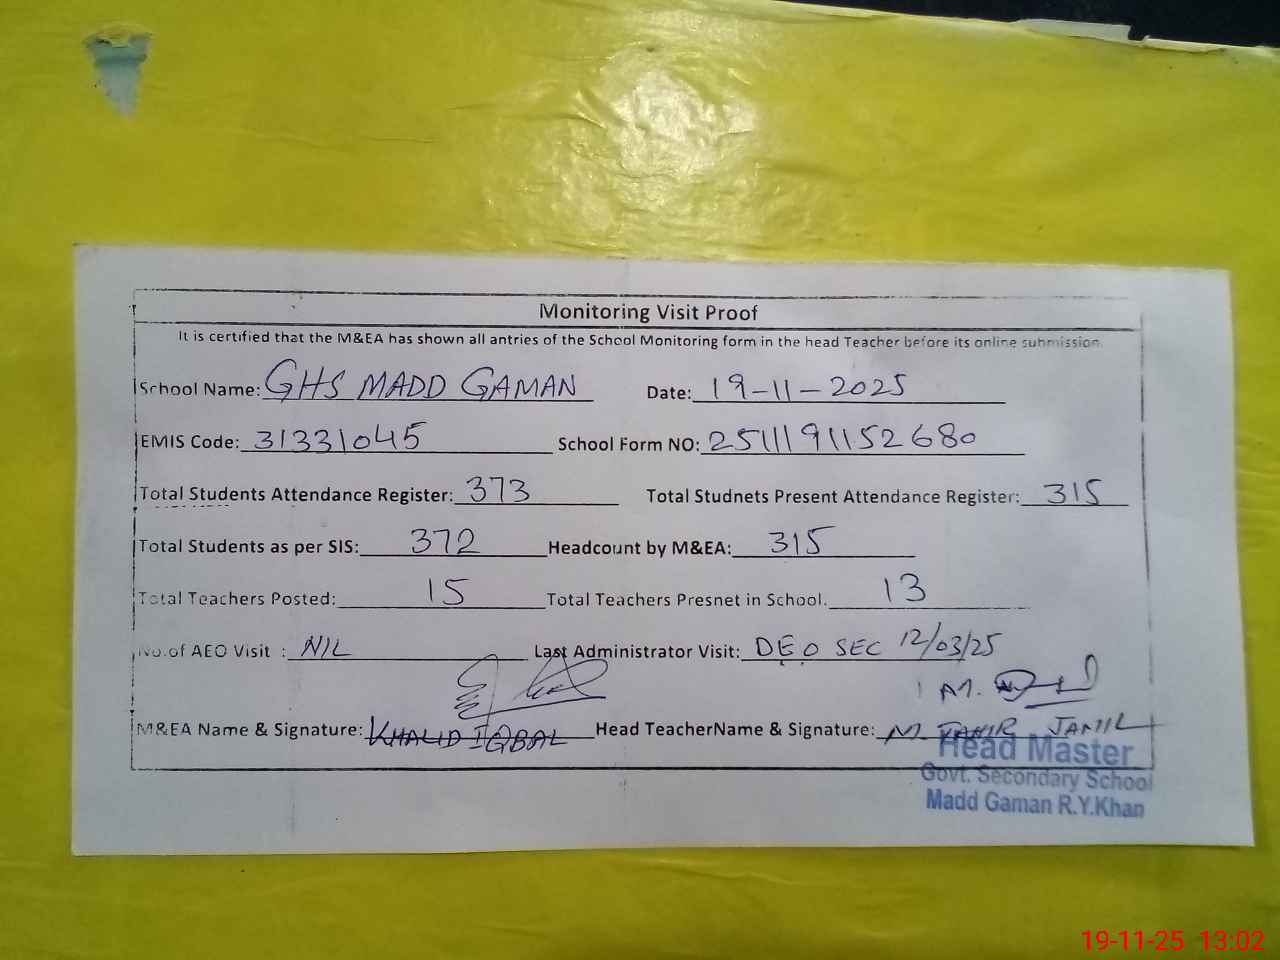 Monitoring Visit Proof
It is certified that the M&EA has shown all antries of the School Monitoring form in the head Teacher before its online submission.
School Name: GHS MADD GAMAN Date: 19-11-2025
EMIS Code: 31331045 School Form NO: 2511191152680
Total Students Attendance Register: 373 Total Studnets Present Attendance Register: 315
Total Students as per SIS: 372 Headcount by M&EA: 315
Total Teachers Posted: 15 Total Teachers Presnet in School. 13
No.of AEO Visit : NIL Last Administrator Visit: DEO SEC 12/03/25
M&EA Name & Signature: KHALID IQBAL Head TeacherName & Signature: M. TAHIR JAMIL
Head Master
Govt. Secondary School
Madd Gaman R.Y.Khan
19-11-25 13:02